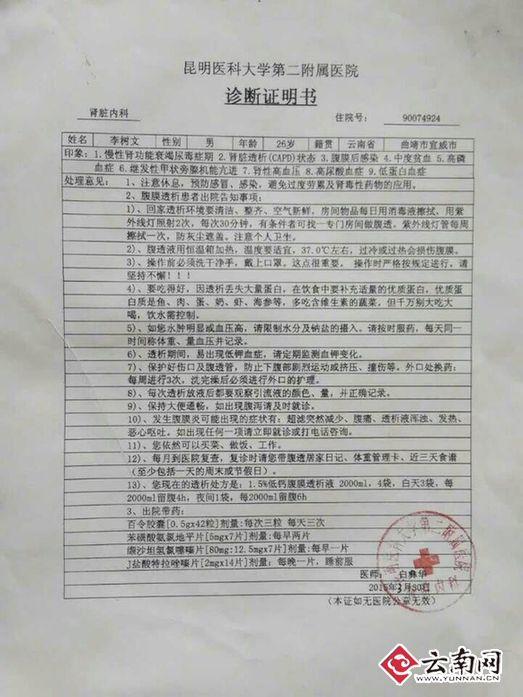 昆明医科大学第二附属医院
诊断证明书
肾脏内科 住院号： 90074924
姓名 李树文 性别 男 年龄 26岁 籍贯 云南省 曲靖市宣威市
印象：1.慢性肾功能衰竭尿毒症期 2.肾脏透析(CAPD)状态 3.腹膜后感染 4.中度贫血 5.高磷
血症 6.继发性甲状旁腺机能亢进 7.肾性高血压 8.高尿酸血症 9.低蛋白血症
处理意见： 1、注意休息，预防感冒、感染，避免过度劳累及肾毒性药物的应用。
2、腹膜透析患者出院告知事项：
1)、回家透析环境要清洁、整齐、空气新鲜，房间物品每日用消毒液擦拭，用紫
外线灯照射2次，每次30分钟，有条件者可找一专门房间做腹透。紫外线灯管每周
擦拭一次，防灰尘遮盖。注意个人卫生。
2)、腹透液用恒温箱加热，温度要适宜，37.0℃左右，过冷或过热会损伤腹膜。
3)、操作前必须洗干净手，戴上口罩。这点很重要。操作时严格按规定进行，请
坚持不懈！！！
4)、要吃得好，因透析丢失大量蛋白，在饮食中要补充适量的优质蛋白，优质蛋
白质是鱼、肉、蛋、奶、虾、海参等，多吃含维生素的蔬菜，但千万别大吃大
喝，饮水需控制。
5)、如您水肿明显或血压高，请限制水分及钠盐的摄入。请按时服药，每天同一
时间称体重、量血压并记录。
6)、透析期间，易出现低钾血症，请定期监测血钾变化。
7)、保护好伤口及腹透管，防止下腹部剧烈运动或挤压、撞伤等。外口处换药：
每周进行3次，洗完澡后必须进行外口的护理。
8)、每次透析放液后都要观察引流液的颜色、量，并正确记录。
9)、保持大便通畅，如出现腹泻请及时就诊。
10)、发生腹膜炎可能出现的症状有：超滤突然减少、腹痛、透析液浑浊、发热、
恶心呕吐。如出现任何一项请立即就诊或打电话咨询。
11)、您依然可以买菜、做饭、工作。
12)、每月到医院复查，复诊时请您带腹透居家日记、体重管理卡、近三天食谱
（至少包括一天的周末或节假日）。
13)、您现在的透析处方是：1.5%低钙腹膜透析液 2000ml，4袋，白天3袋，每
2000ml留腹4h，夜间1袋，每2000ml留腹6h
3、出院带药：
百令胶囊[0.5gx42粒]剂量:每次三粒 每天三次
苯磺酸氨氯地平片[5mgx7片]剂量:每早两片
缬沙坦氢氯噻嗪片[80mg:12.5mgx7片]剂量:每早一片
J盐酸特拉唑嗪片[2mgx14片]剂量：每晚一片，睡前服
医师：
2015年3月30日
（本证如无医院公章无效）
云南网
WWW.YUNNAN.CN